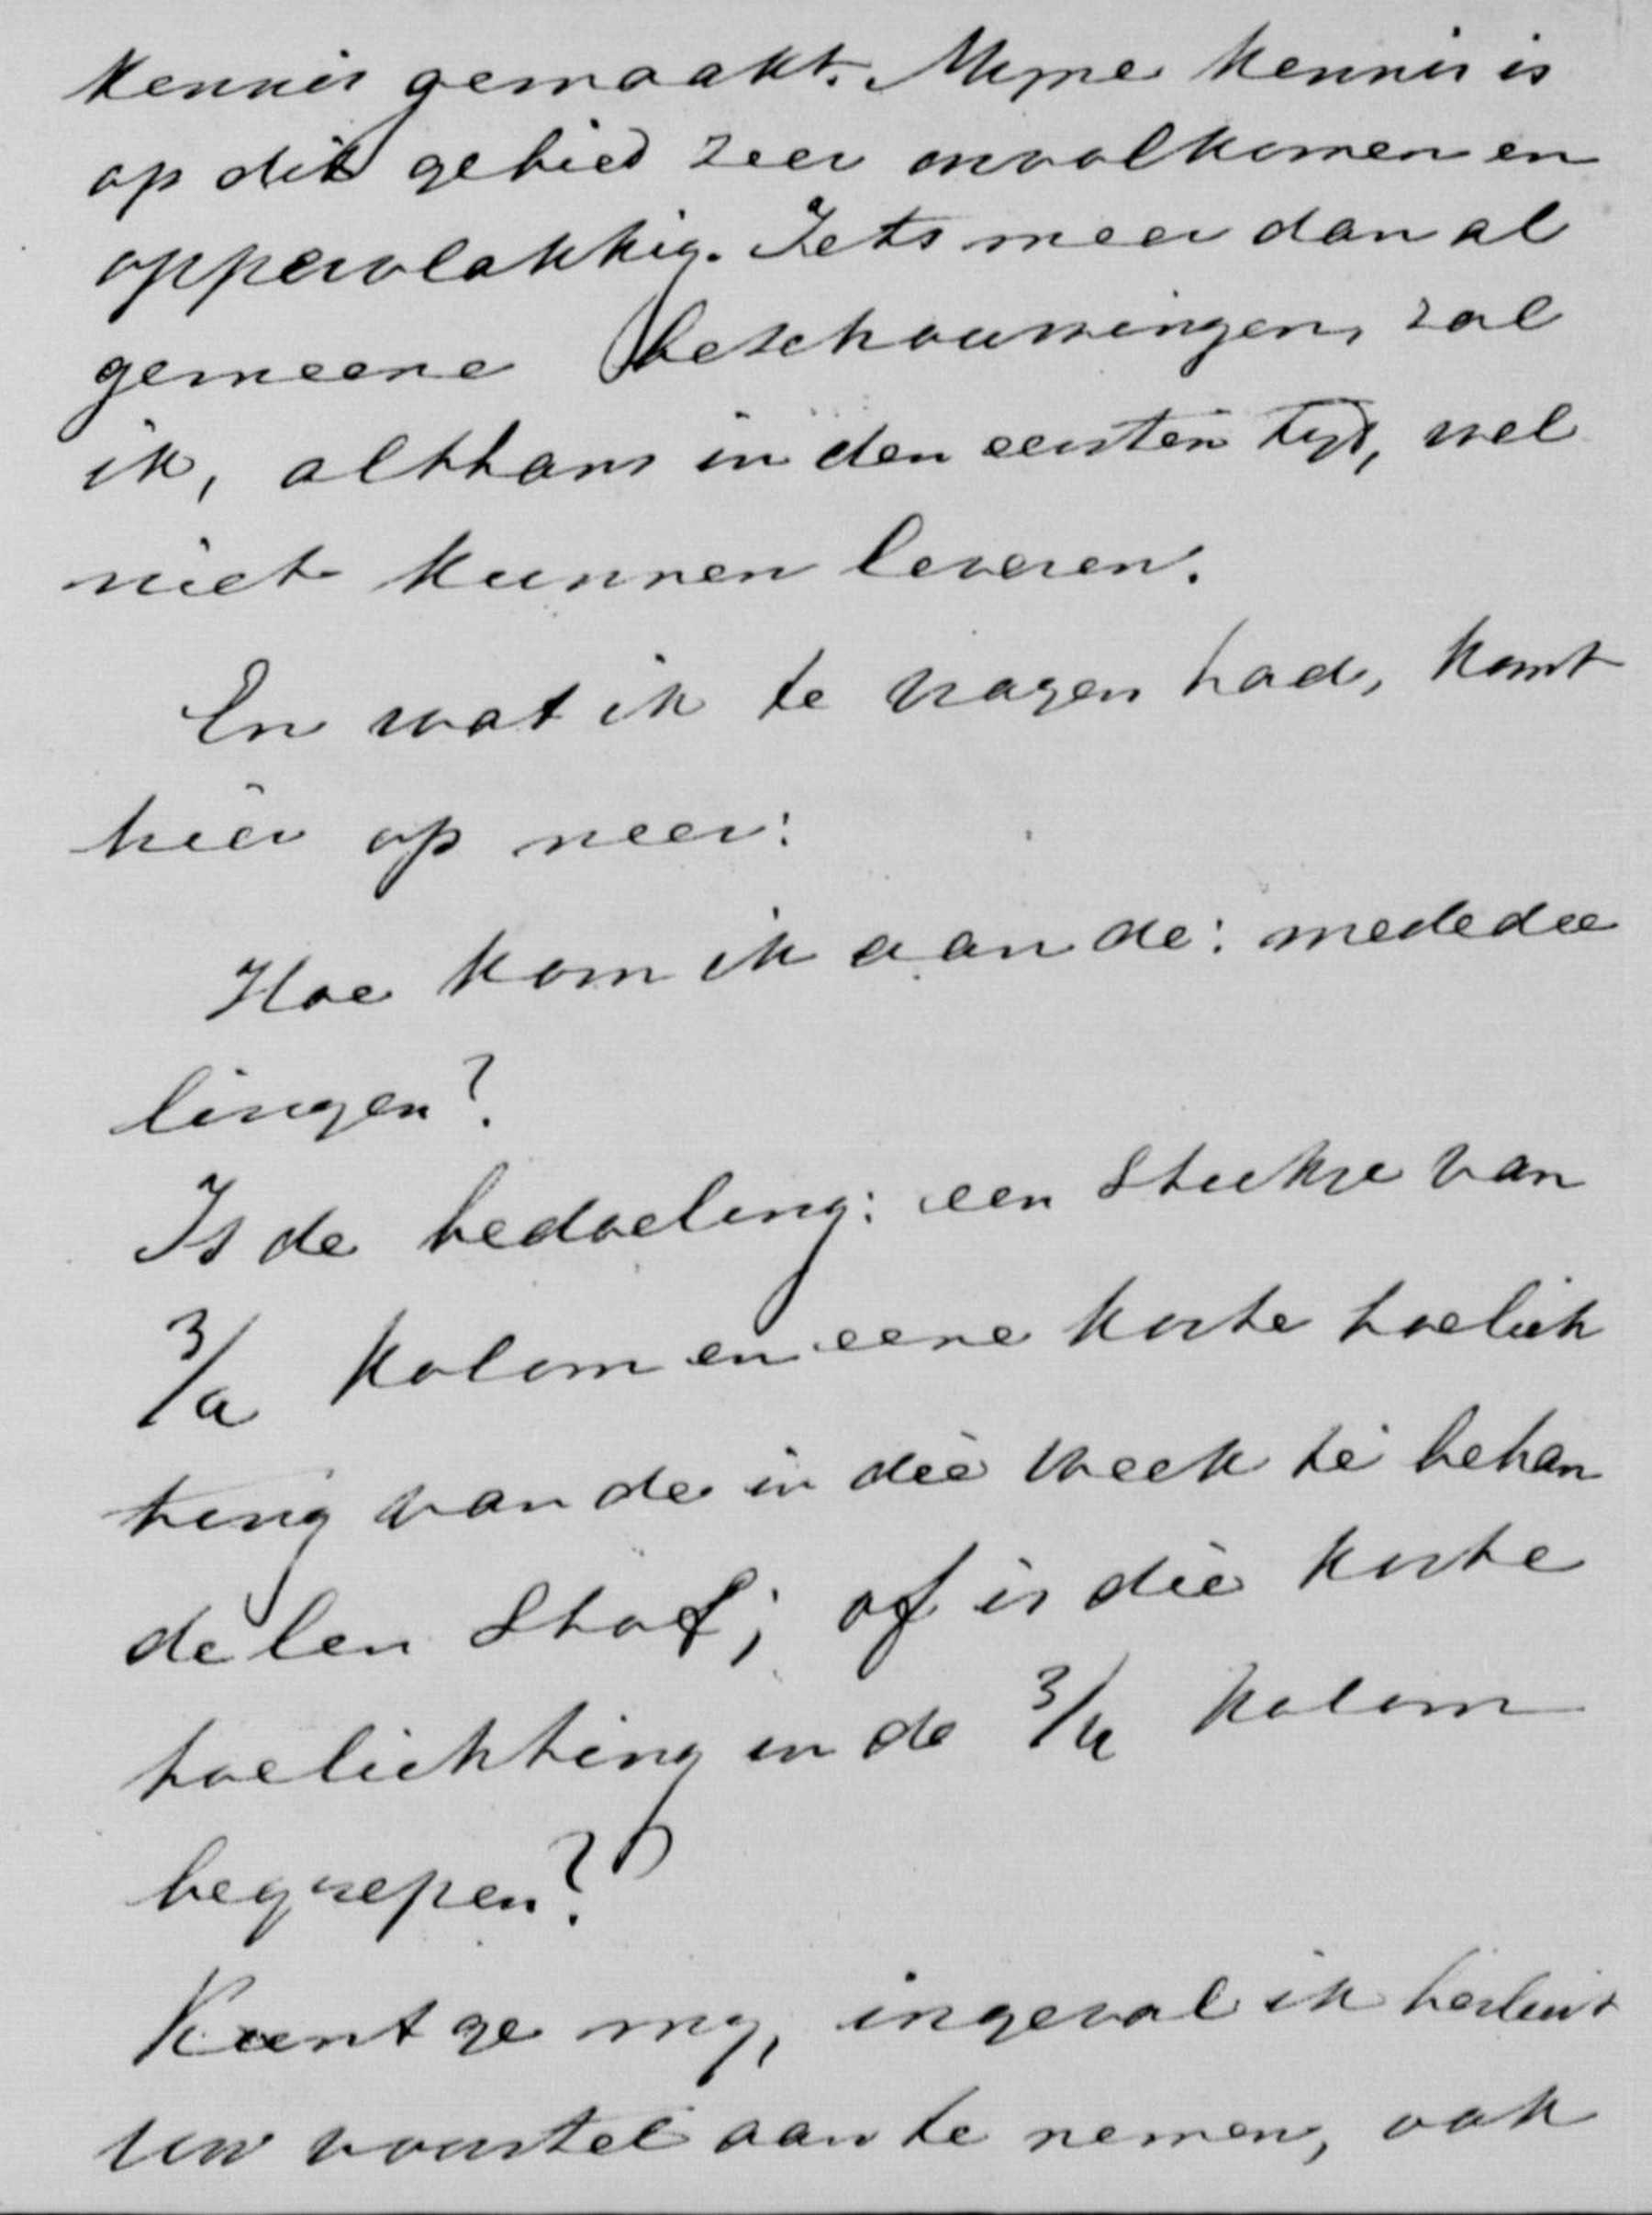 kennis gemaakt. Myne kennis is
op dit gebied zeer onvolkomen en
oppervlakkig. Iets meer dan al
gemeene beschouwingen, zal
ik, althans in den eersten tyd, wel
niet kunnen leveren.
En wat ik te vragen had, komt
hier op neer:
Hoe kom ik aan de: mededee
lingen?
Is de bedoeling: een stukje van
3/4 kolom en eene korte toelich
ting van de in die week te behan
delen stof; of is die korte
toelichting in de 3/4 kolom
begrepen?
Kunt ge my, ingeval ik besluit
uw voorstel aan te nemen, ook